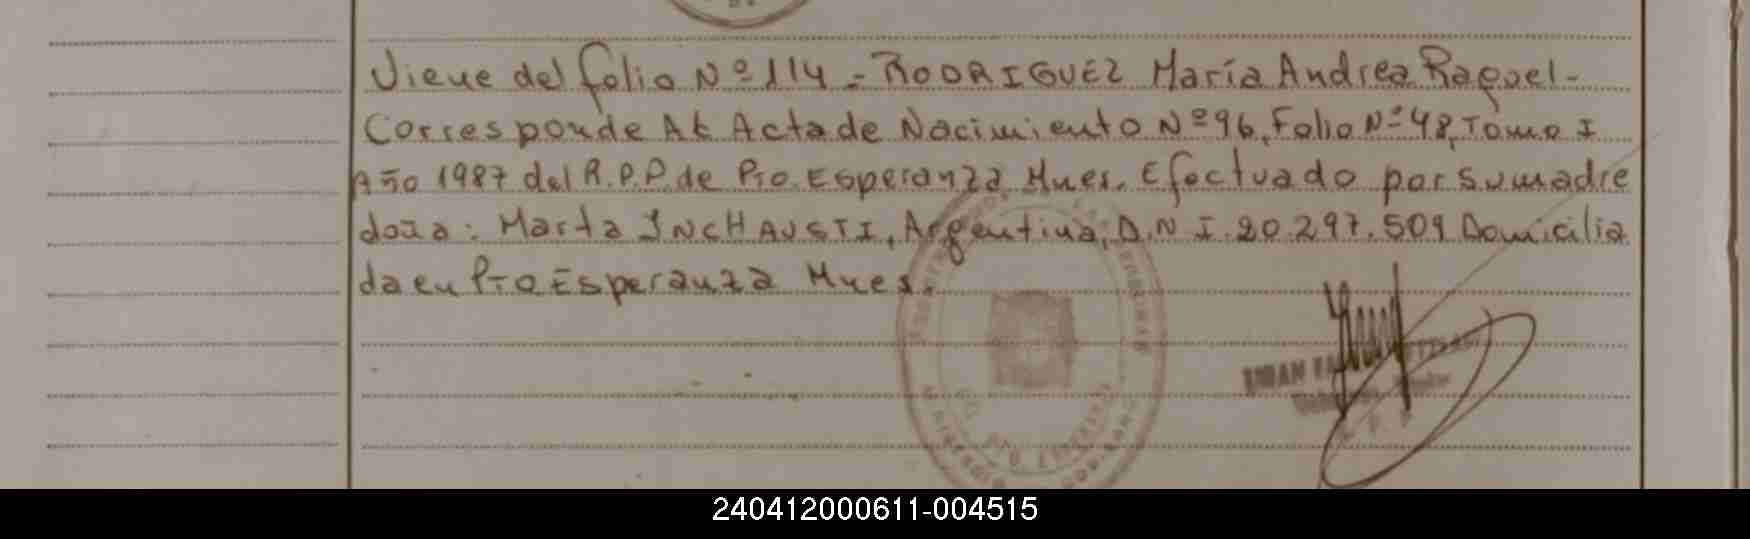 Viene del folio Nº 114 - RODRIGUEZ María Andrea Raquel -
Corresponde AL Acta de Nacimiento Nº 96, Folio Nº 48, Tomo I
Año 1987 del R.P.P. de Pto. Esperanza Mnes. Efectuado por su madre
doña: Marta INCHAUSTI, Argentina, D.N.I. 20.297.509 Domicilia
da en Pto Esperanza Mnes.
240412000611-004515